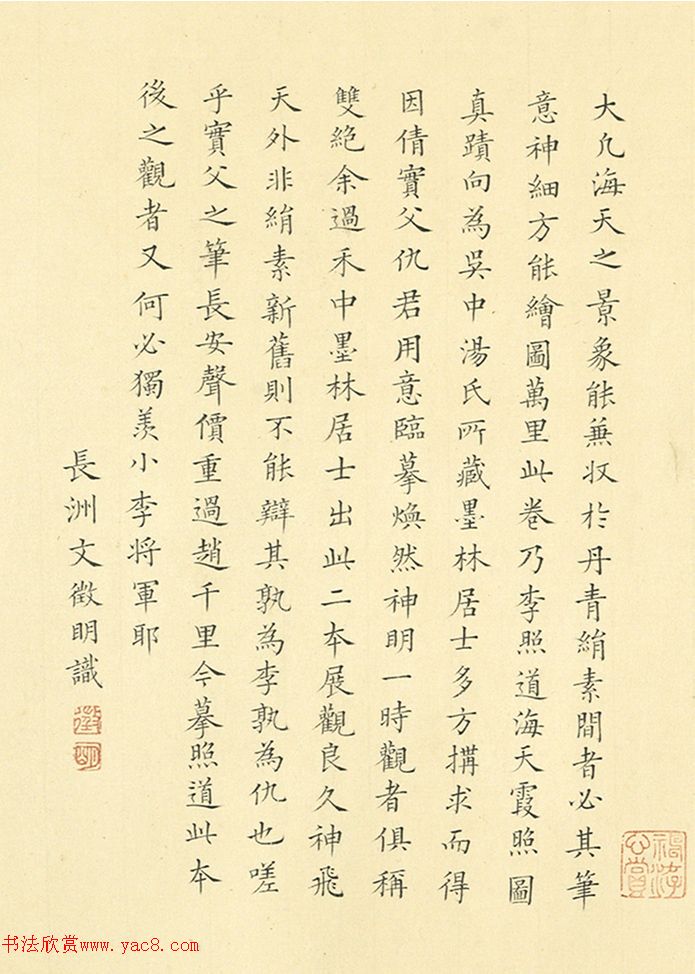 大凡海天之景象能兼収於丹青絹素間者必其筆
意神細方能繪圖萬里此卷乃李照道海天霞照圖
真蹟向為吳中湯氏所藏墨林居士多方搆求而得
因倩實父仇君用意臨摹煥然神明一時觀者俱稱
雙絕余過禾中墨林居士出此二本展觀良久神飛
天外非絹素新舊則不能辯其孰為李孰為仇也嗟
乎實父之筆長安聲價重過趙千里今摹照道此本
後之觀者又何必獨羨小李将軍耶
長洲文徵明識
徵
明
書法欣赏www.yac8.com